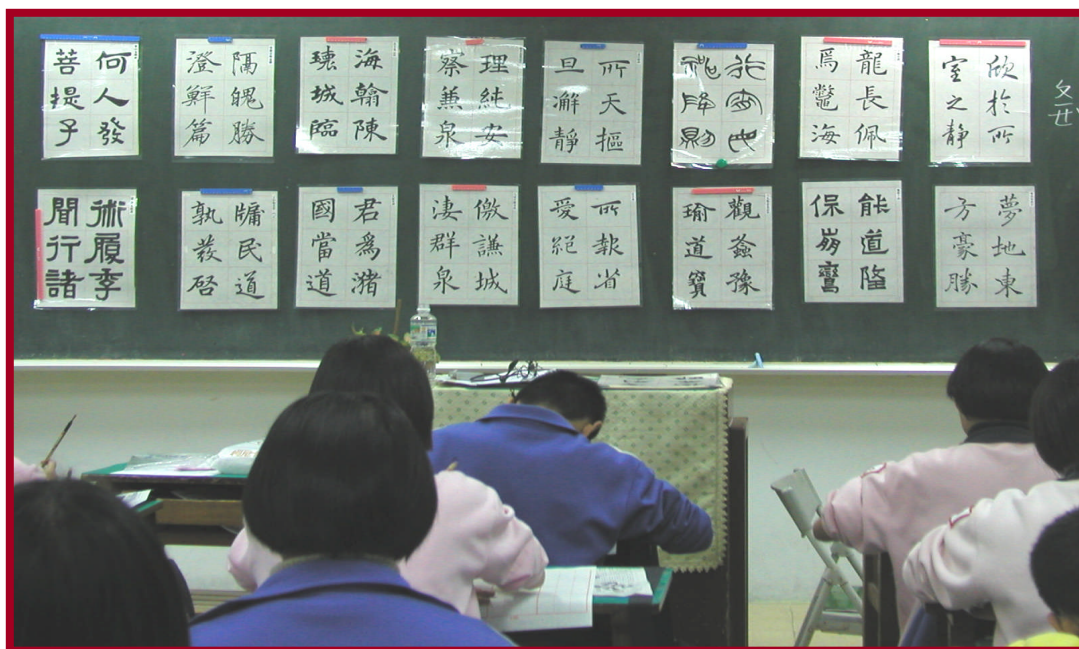 何人發
菩提子
隔魄勝
澄鮮篇
海翰陳
城臨
理純安
察兼泉
所天摳
旦澥靜
降
龍長佩
焉鼈海
欣於所
室之靜
術履季
聞行諸
牖民道
孰發啓
君為瀦
國當道
儆謙城
淒群泉
所報省
愛絕庭
觀蠡豫
瑜道寶
能道隆
保崩鸞
夢地東
方豪勝